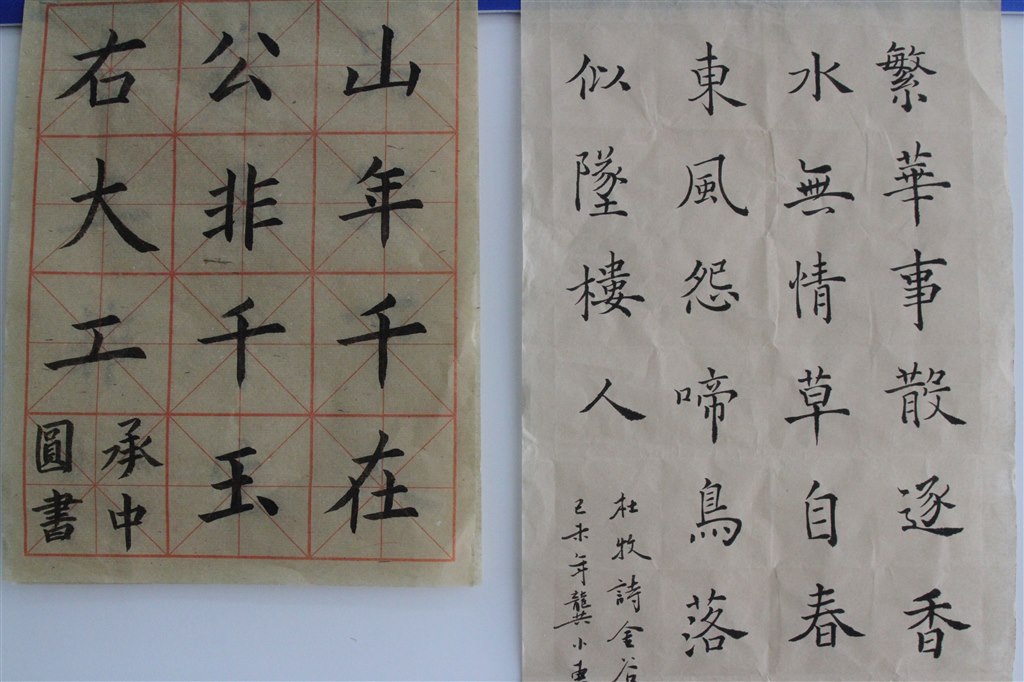 山年千在
公非千玉
右大工
承中
圓書
繁華事散逐香
水無情草自春
東風怨啼鳥落
似墜樓人
杜牧詩金谷
己未年龔小